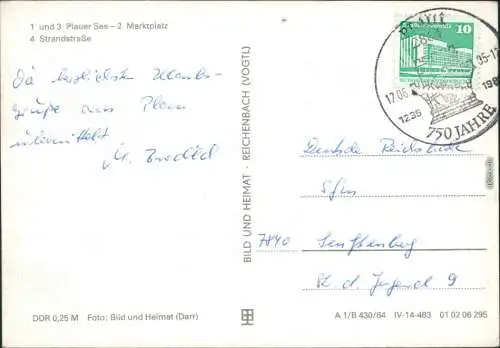 1 und 3 Plauer See – 2 Marktplatz
4 Strandstraße
Die herzlichsten Urlaubs-
grüße aus Plau
übermittelt
BILD UND HEIMAT · REICHENBACH (VOGTL)
10
17.06
1235
750 JAHRE
Deutsche Reichsbahn
7840 Senftenberg
Str. d. Jugend 9
DDR 0,25 M Foto: Bild und Heimat (Darr)
A 1/B 430/84 IV-14-483 01 02 06 295